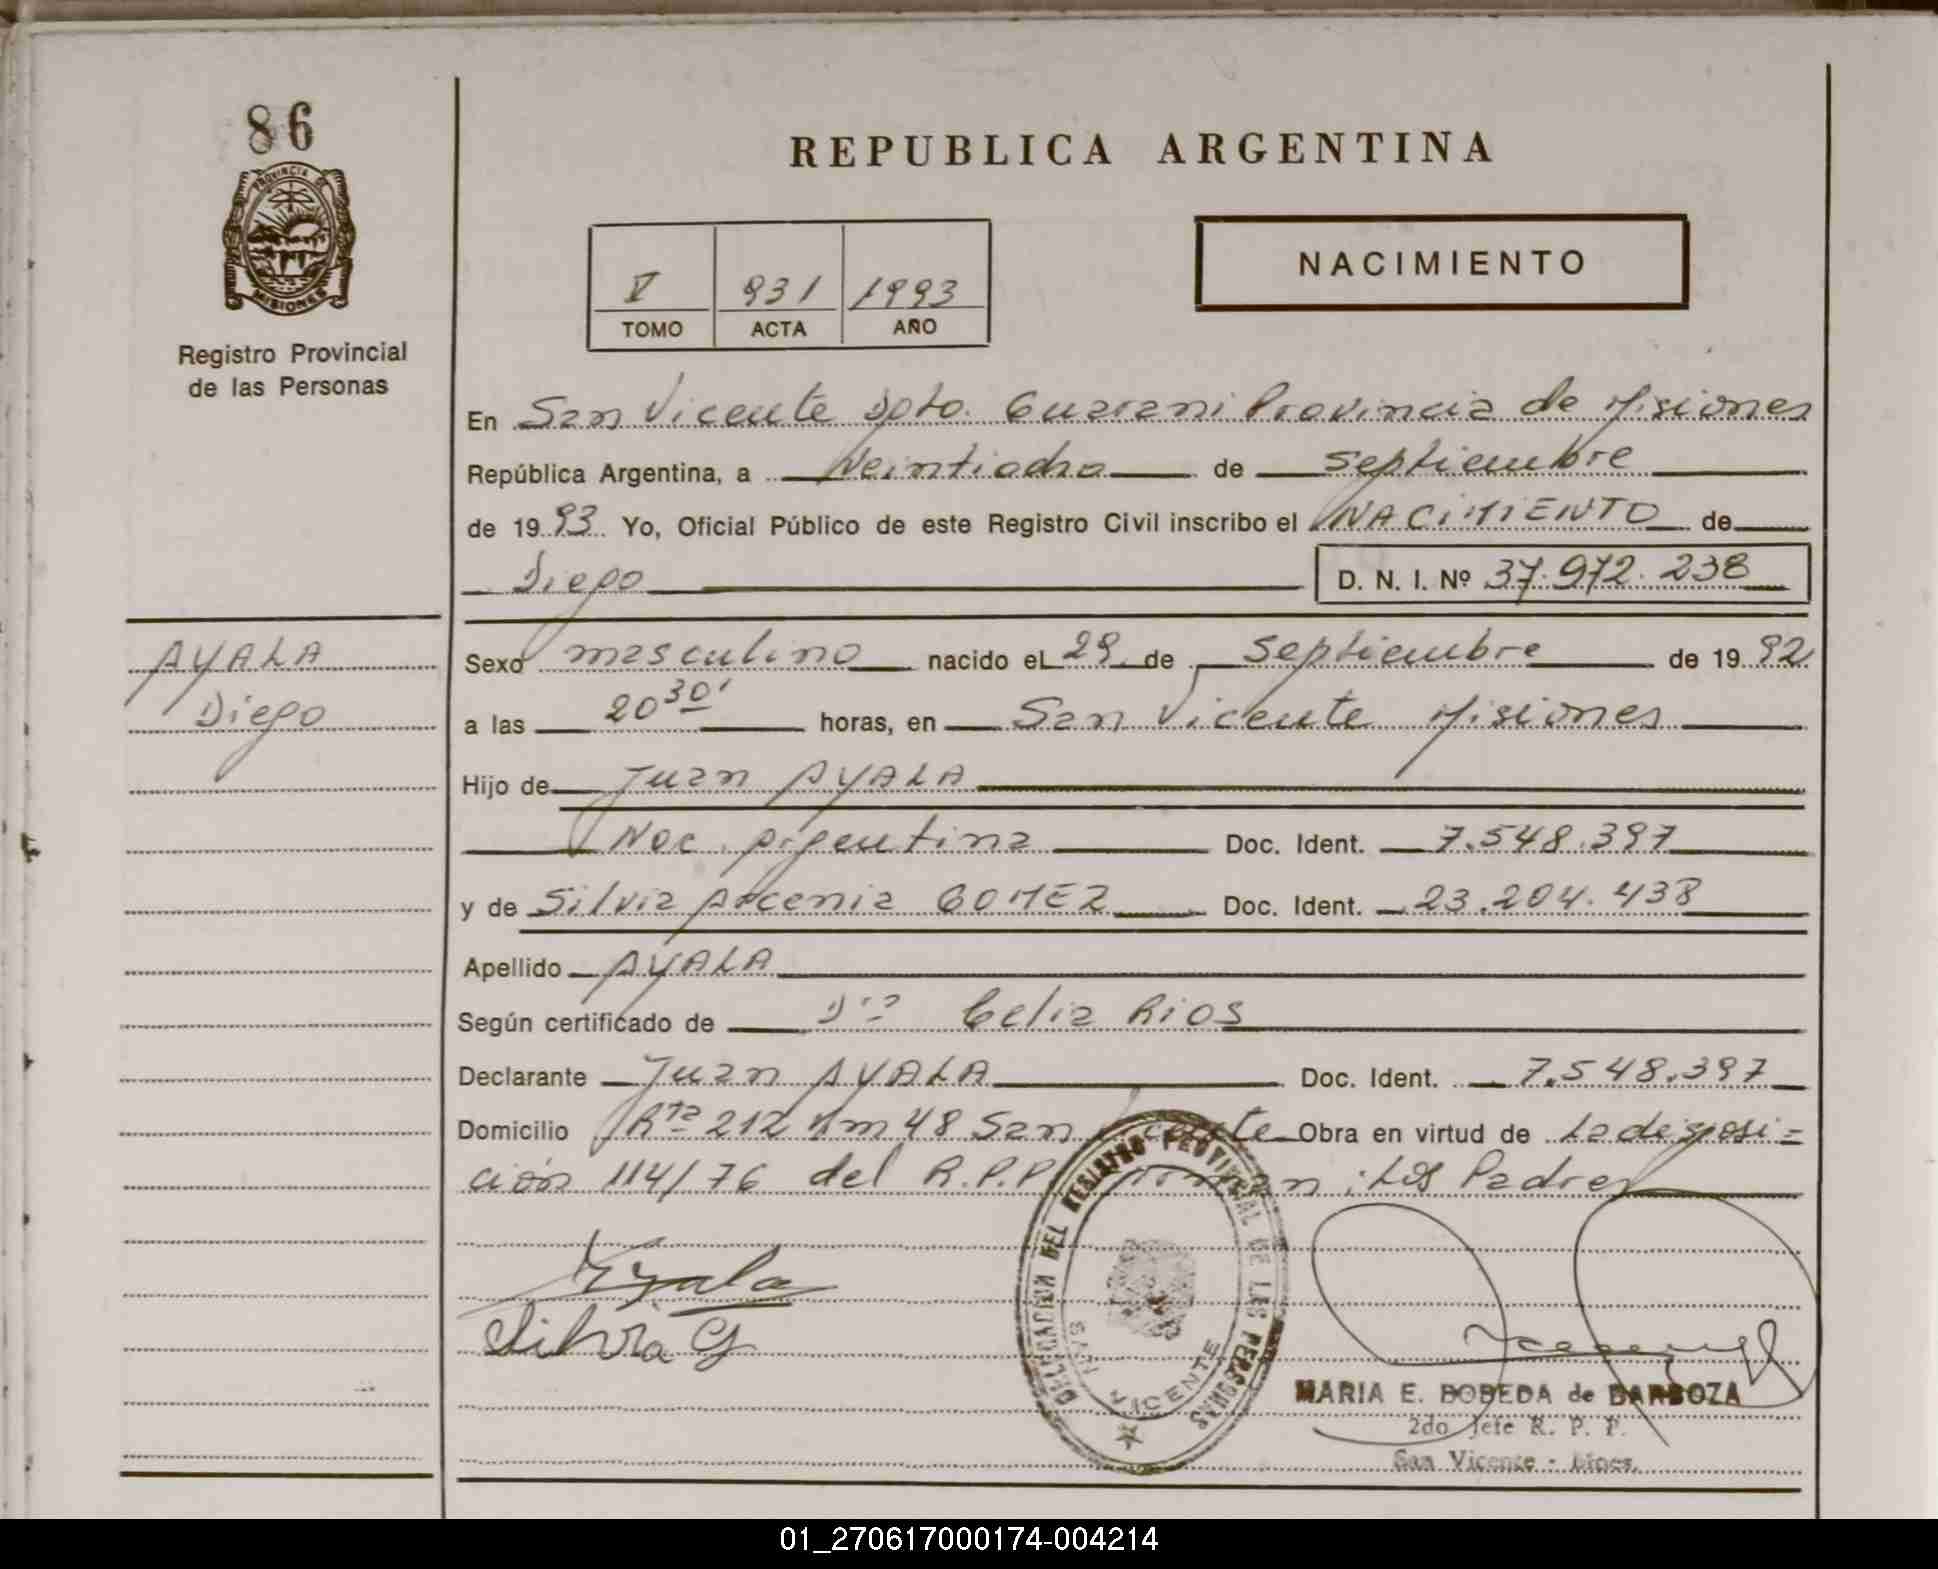 86
PROVINCIA DE
MISIONES
Registro Provincial
de las Personas
REPUBLICA ARGENTINA
V 931 1993
TOMO ACTA AÑO
NACIMIENTO
En San Vicente Dpto. Guarani Provincia de Misiones
República Argentina, a Veintiocho de septiembre
de 19 93 Yo, Oficial Público de este Registro Civil inscribo el NACIMIENTO de
Diego D. N. I. Nº 37.972.238
AYALA
Diego
Sexo masculino nacido el 29 de Septiembre de 19 92
a las 20 30' horas, en San Vicente Misiones
Hijo de Juan AYALA
Nac. Argentina Doc. Ident. 7.548.397
y de Silvia Arcenia GOMEZ Doc. Ident. 23.204.438
Apellido AYALA
Según certificado de Dra Celia Rios
Declarante Juan AYALA Doc. Ident. 7.548.397
Domicilio Rta 212 Km 48 San Vicente Obra en virtud de La disposi=
ción 114/76 del R.P.P. Firman: Los Padres
Ayala
Silvia G
DELEGACION DEL REGISTRO PROVINCIAL DE LAS PERSONAS
SAN VICENTE
MARIA E. BOBEDA de BARBOZA
2do Jefe R. P. P.
San Vicente - Mnes.
01_270617000174-004214